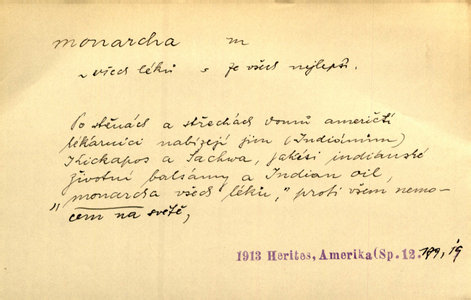 monarcha m
~ všech léků s je všech nejlepší.
Po stěnách a střechách domů američtí
lékárníci nabízejí jim (Indiánům)
Kickapos a Sachwa, jakési indiánské
životní balsámy a Indian oil,
„monarcha všech léků," proti všem nemo-
cem na světě,
1913 Herites, Amerika (Sp. 12. 199, 19